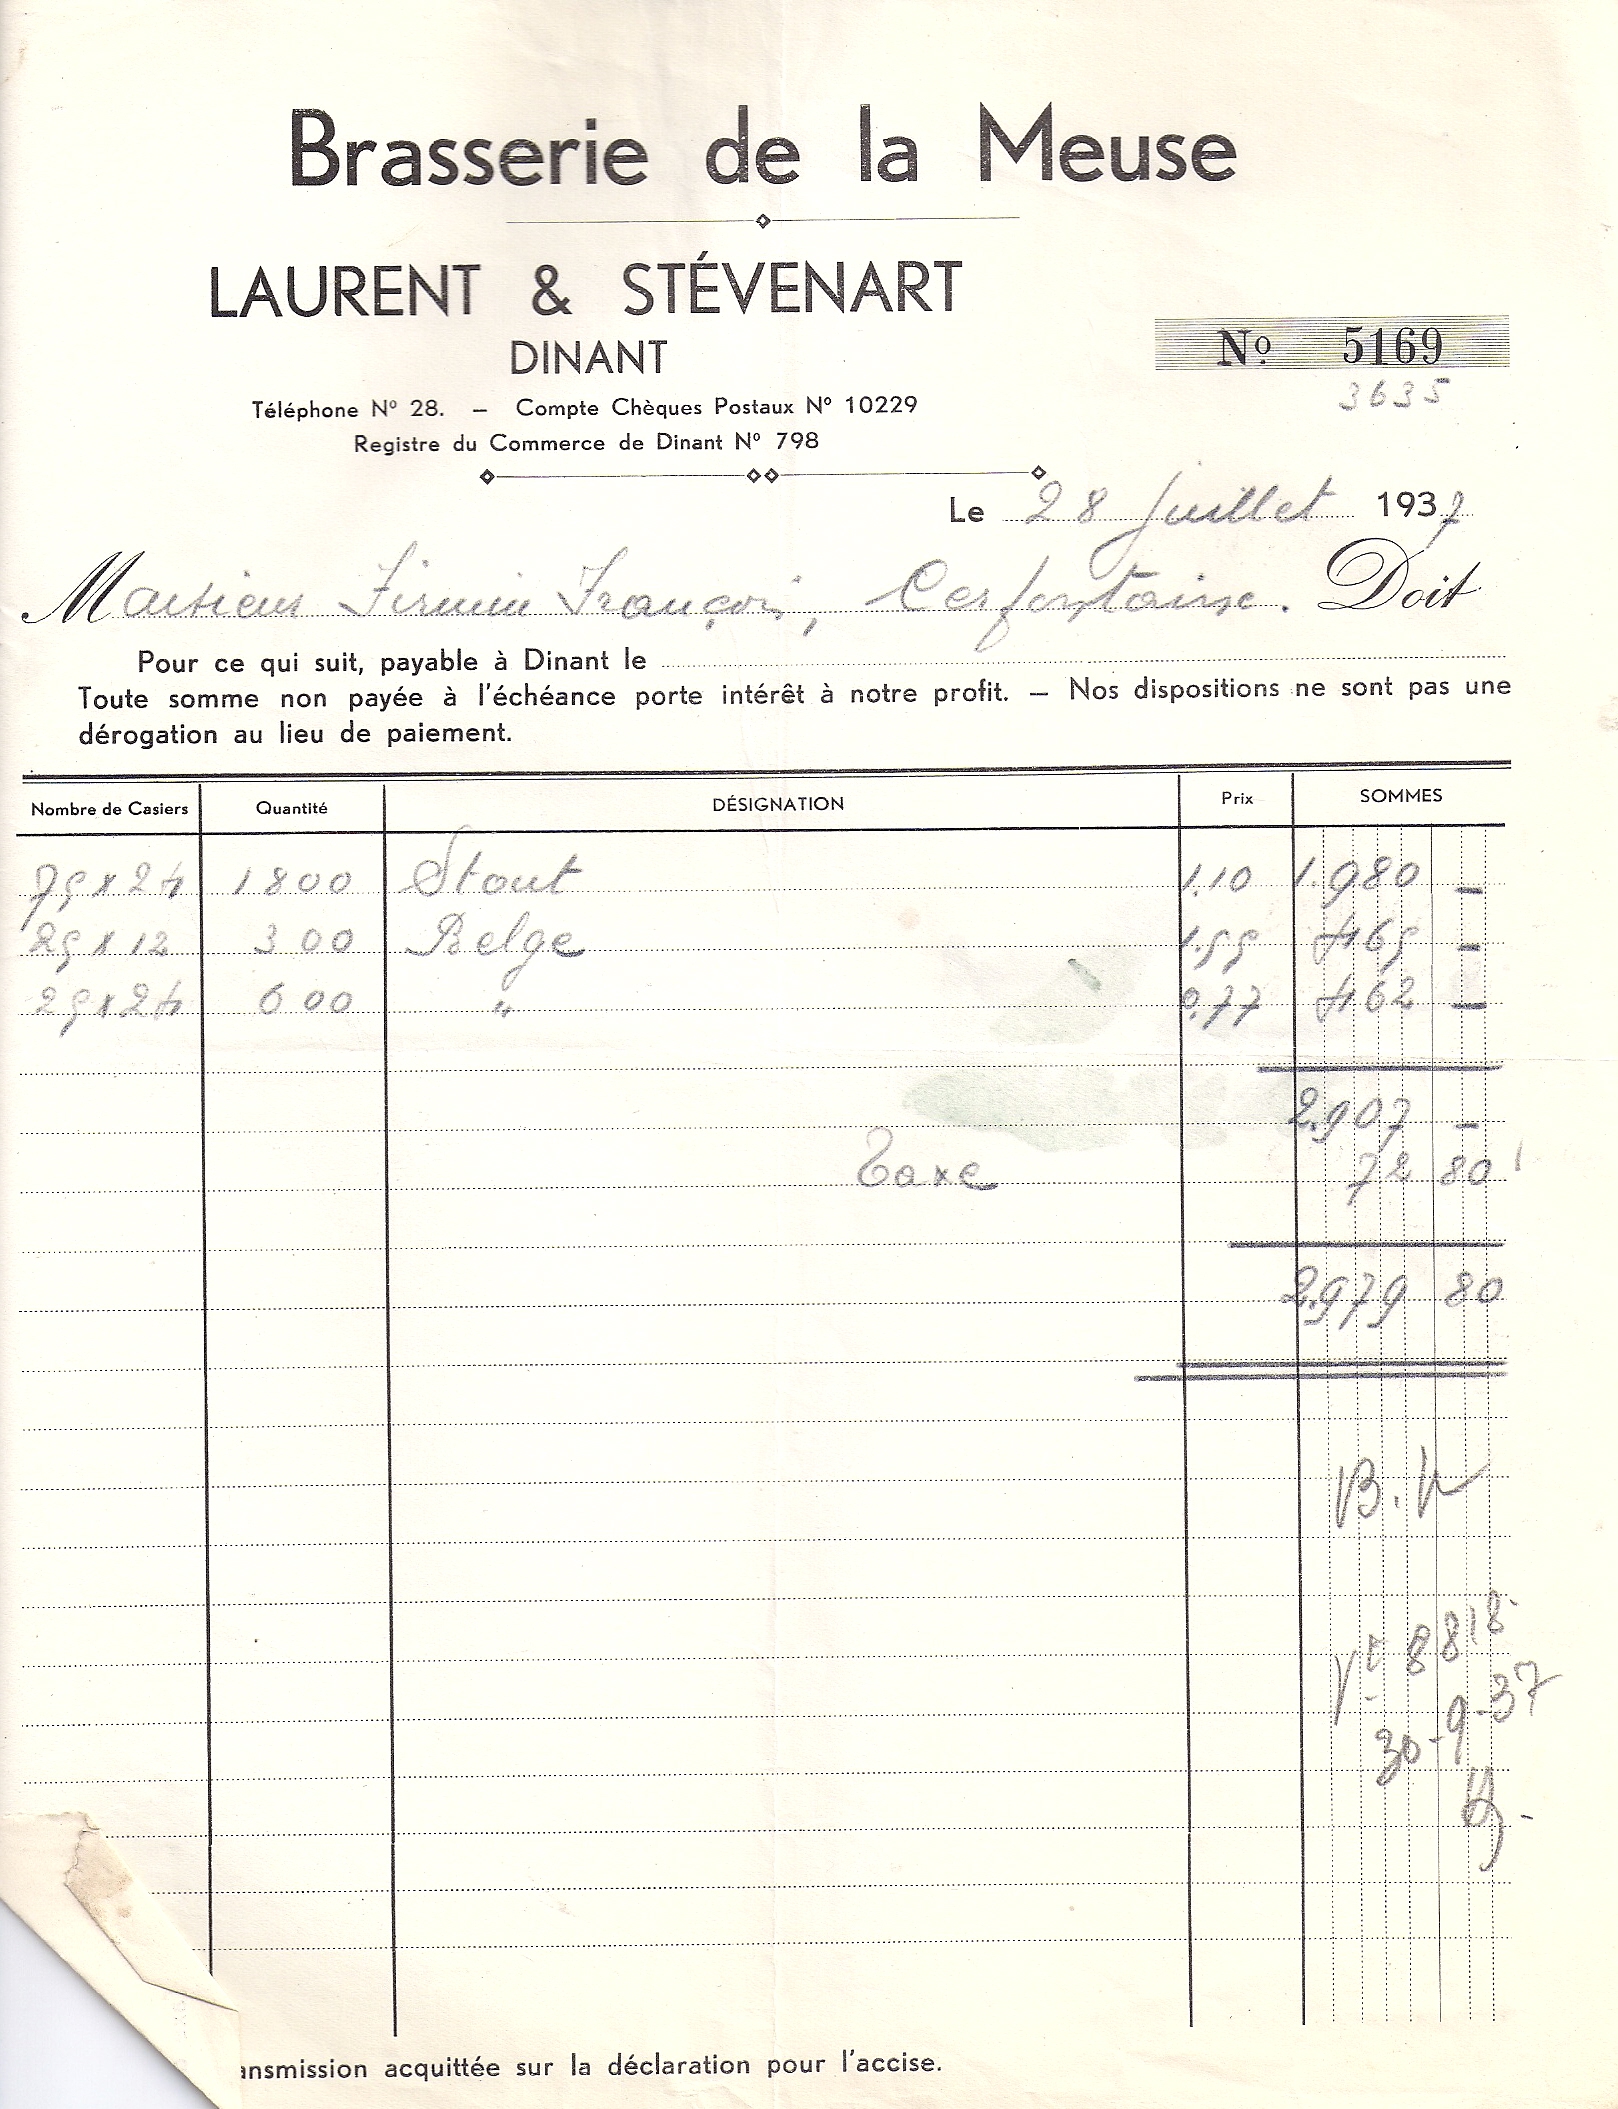 Brasserie de la Meuse
LAURENT & STÉVENART
DINANT
Nº 5169
3635
Téléphone Nº 28. – Compte Chèques Postaux Nº 10229
Registre du Commerce de Dinant Nº 798
Le 28 Juillet 1937
Monsieur Firmin François, Cerfontaine. Doit
Pour ce qui suit, payable à Dinant le
Toute somme non payée à l'échéance porte intérêt à notre profit. – Nos dispositions ne sont pas une
dérogation au lieu de paiement.
Nombre de Casiers Quantité DÉSIGNATION Prix SOMMES
75 x 24 1800 Stout 1.10 1.980 –
25 x 12 300 Belge 1.55 465 –
25 x 24 600 " 0.77 462 –
2.907 –
Taxe 72 80
2.979 80
8818
30-9-37
ansmission acquittée sur la déclaration pour l'accise.